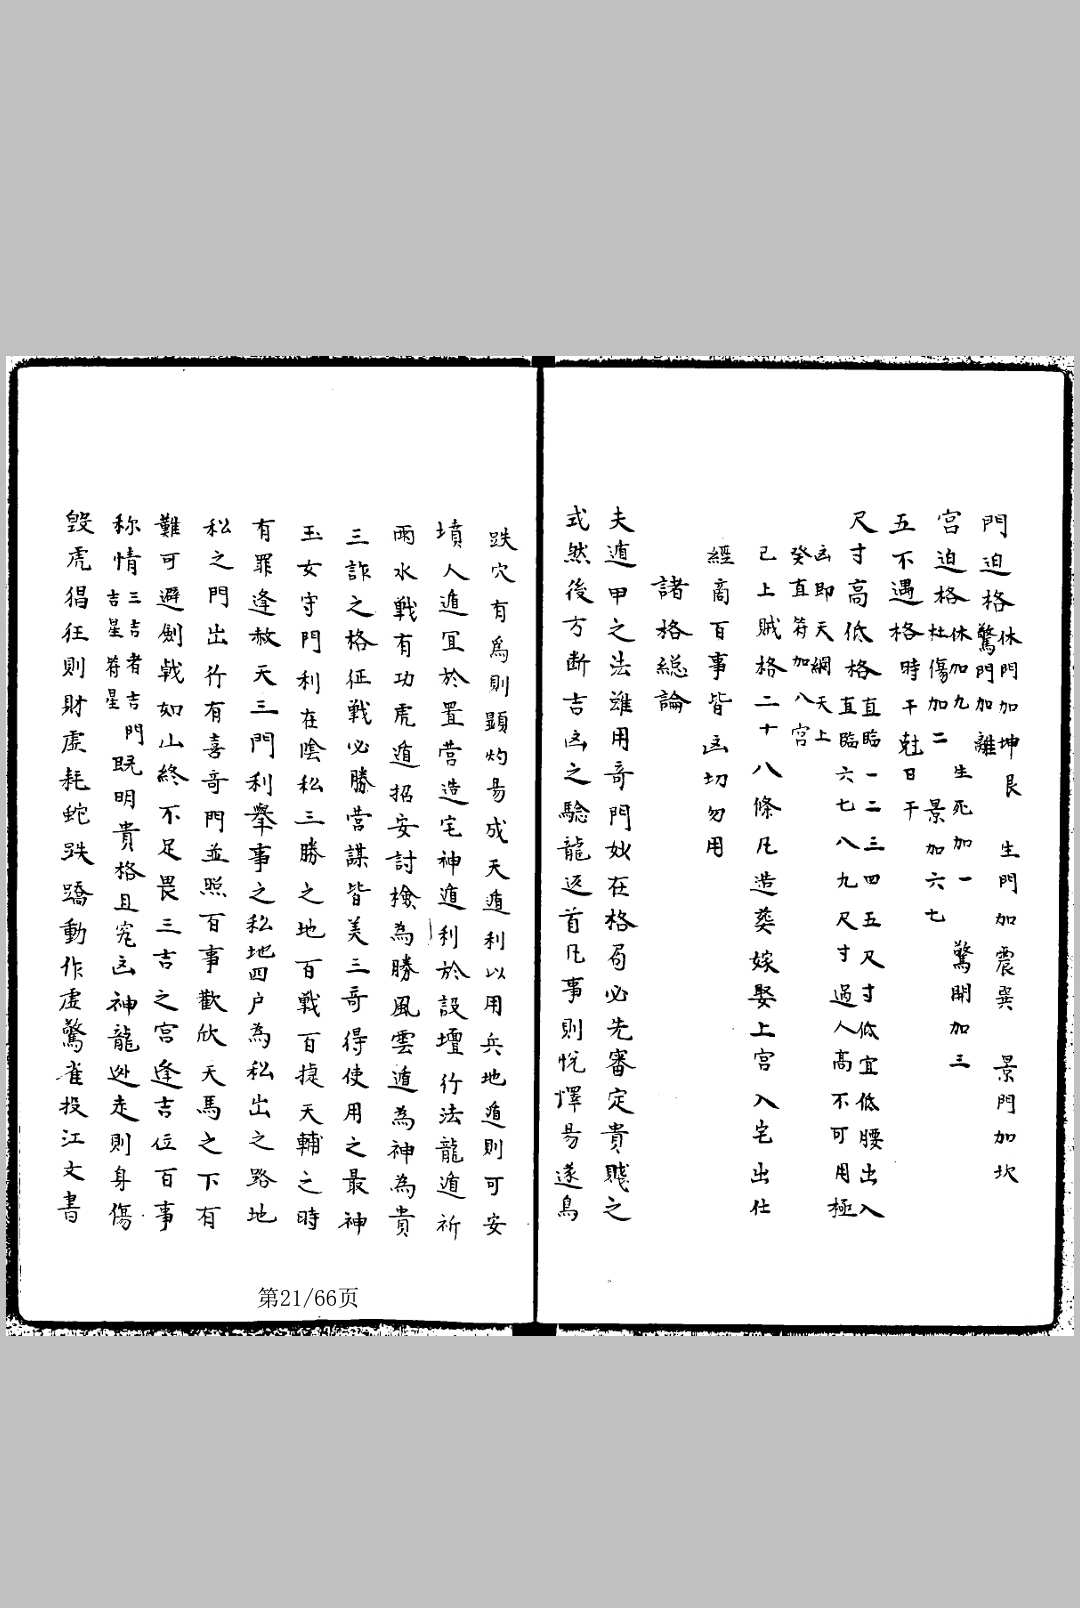 門迫格休門加坤艮 生門加震巽 景門加坎
驚門加離
宮迫格休加九 生死加一 驚開加三
杜傷加二 景加六七
五不遇格時干尅日干
尺寸高低格直臨一二三四五尺寸低宜低腰出入
直臨六七八九尺寸過人高不可用極
凶即天網天上
癸直符加八宮
已上賊格二十八條凡造葬嫁娶上宮入宅出仕
經商百事皆凶切勿用
諸格総論
夫遁甲之法雖用奇門妙在格局必先審定貴賤之
式然後方断吉凶之驗龍返首凡事則悅懌昜遂鳥
跌穴有爲則顕灼昜成天遁利以用兵地遁則可安
墳人遁宜於置营造宅神遁利於設壇行法龍遁祈
雨水戦有功虎遁招安討檎為勝風雲遁為神為貴
三詐之格征戰必勝营謀皆美三奇得使用之最神
玉女守門利在陰私三勝之地百戰百捷天輔之時
有罪逢赦天三門利舉事之私地四户為私出之路地
私之門出行有喜奇門並照百事歡欣天馬之下有
難可避劍戟如山終不足畏三吉之宮逢吉位百事
称情三吉者吉門既明貴格且究凶神龍逃走則身傷
吉星符星
毀虎猖狂則財虚耗蛇跌蹻動作虚驚雀投江文書
第21/66页